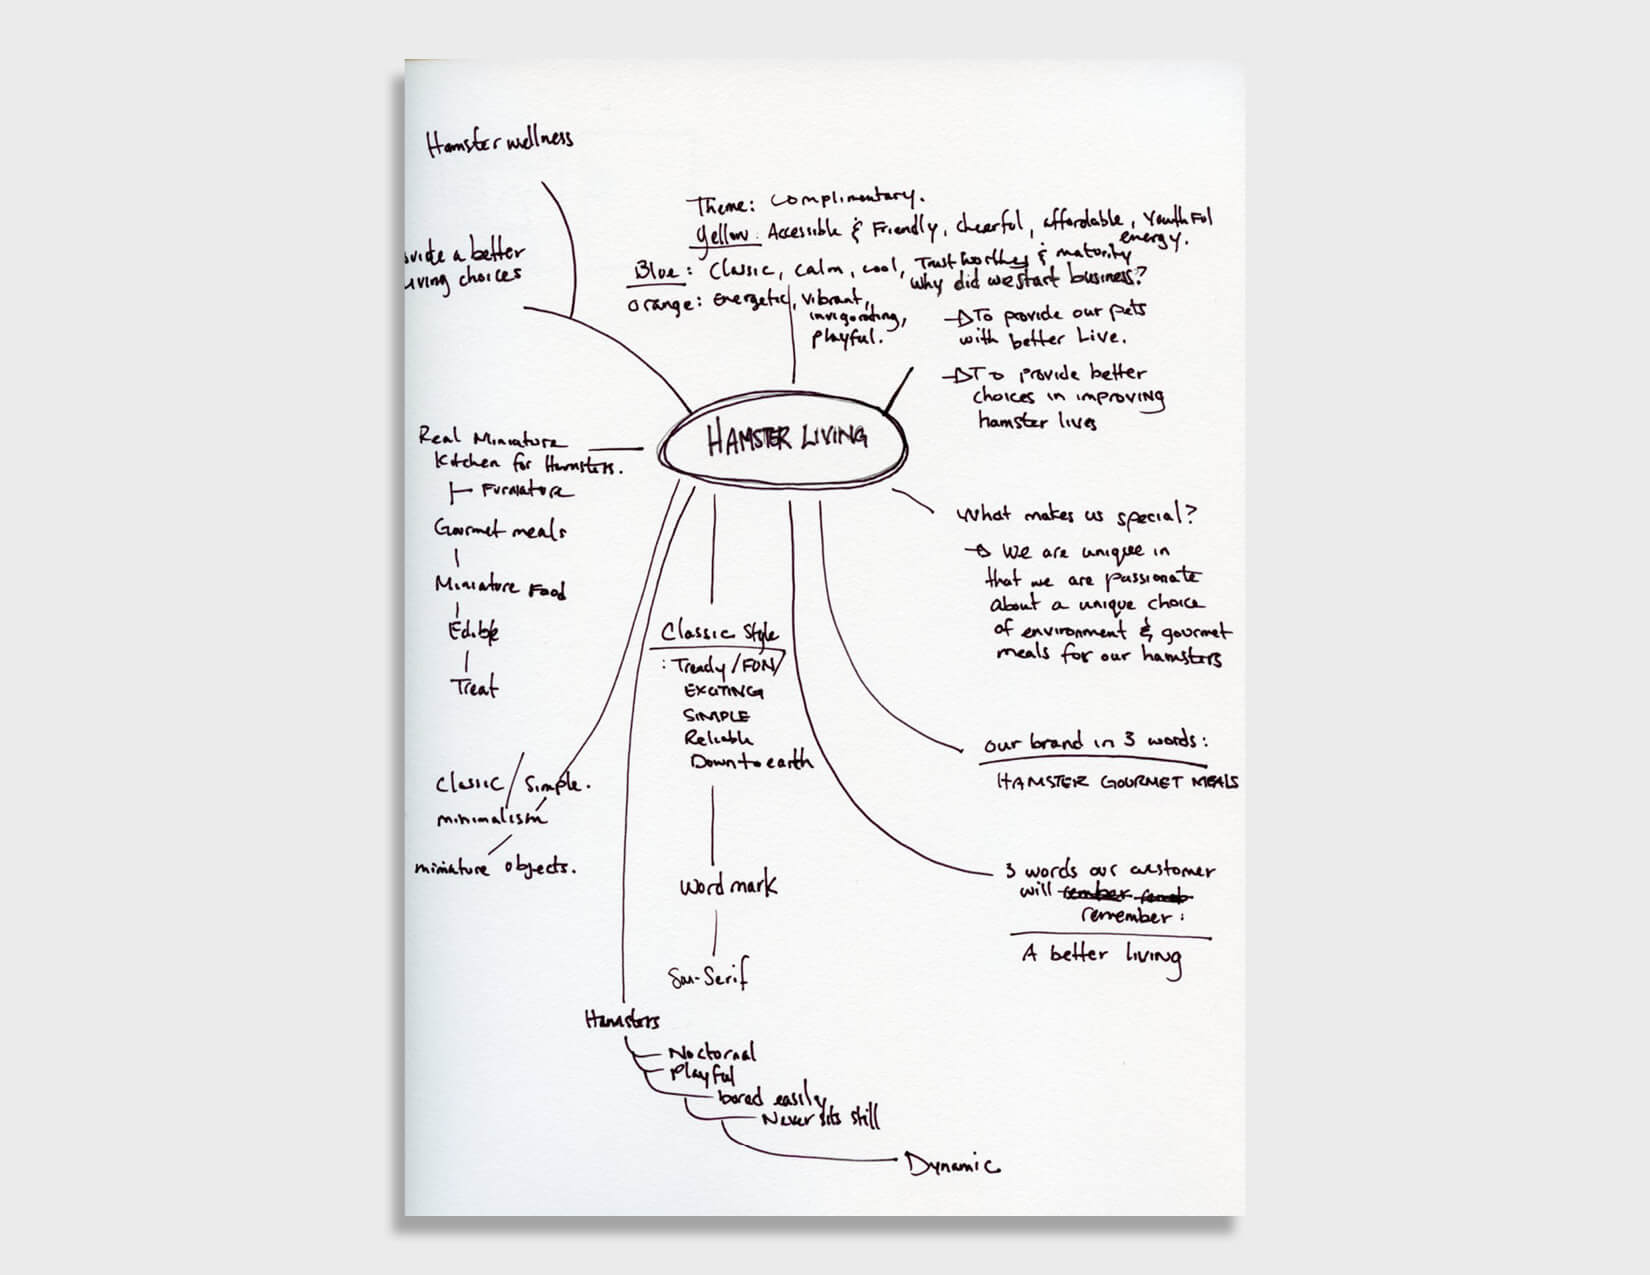 Hamster wellness
ovide a better
living choices
Theme: Complimentary.
Yellow: Accessible & Friendly, cheerful, affordable, Youthful
energy.
Blue: Classic, calm, cool, Trust worthy & maturity
Orange: energetic, vibrant,
invigorating,
playful.
Why did we start business?
To provide our pets
with better Live.
To provide better
choices in improving
hamster lives
HAMSTER LIVING
Real Miniature
Kitchen for Hamsters.
Furniature
Gourmet meals
Miniature Food
Edible
Treat
What makes us special?
We are unique in
that we are passionate
about a unique choice
of environment & gourmet
meals for our hamsters
Classic Style
: Trendy/FUN/
EXCITING
SIMPLE
Reliable
Down to earth
word mark
San-Serif
our brand in 3 words:
HAMSTER GOURMET MEALS
Classic/Simple.
minimalism
miniature objects.
3 words our customer
will
remember:
A better living
Hamsters
Nocturnal
Playful
bored easily
Never sits still
Dynamic